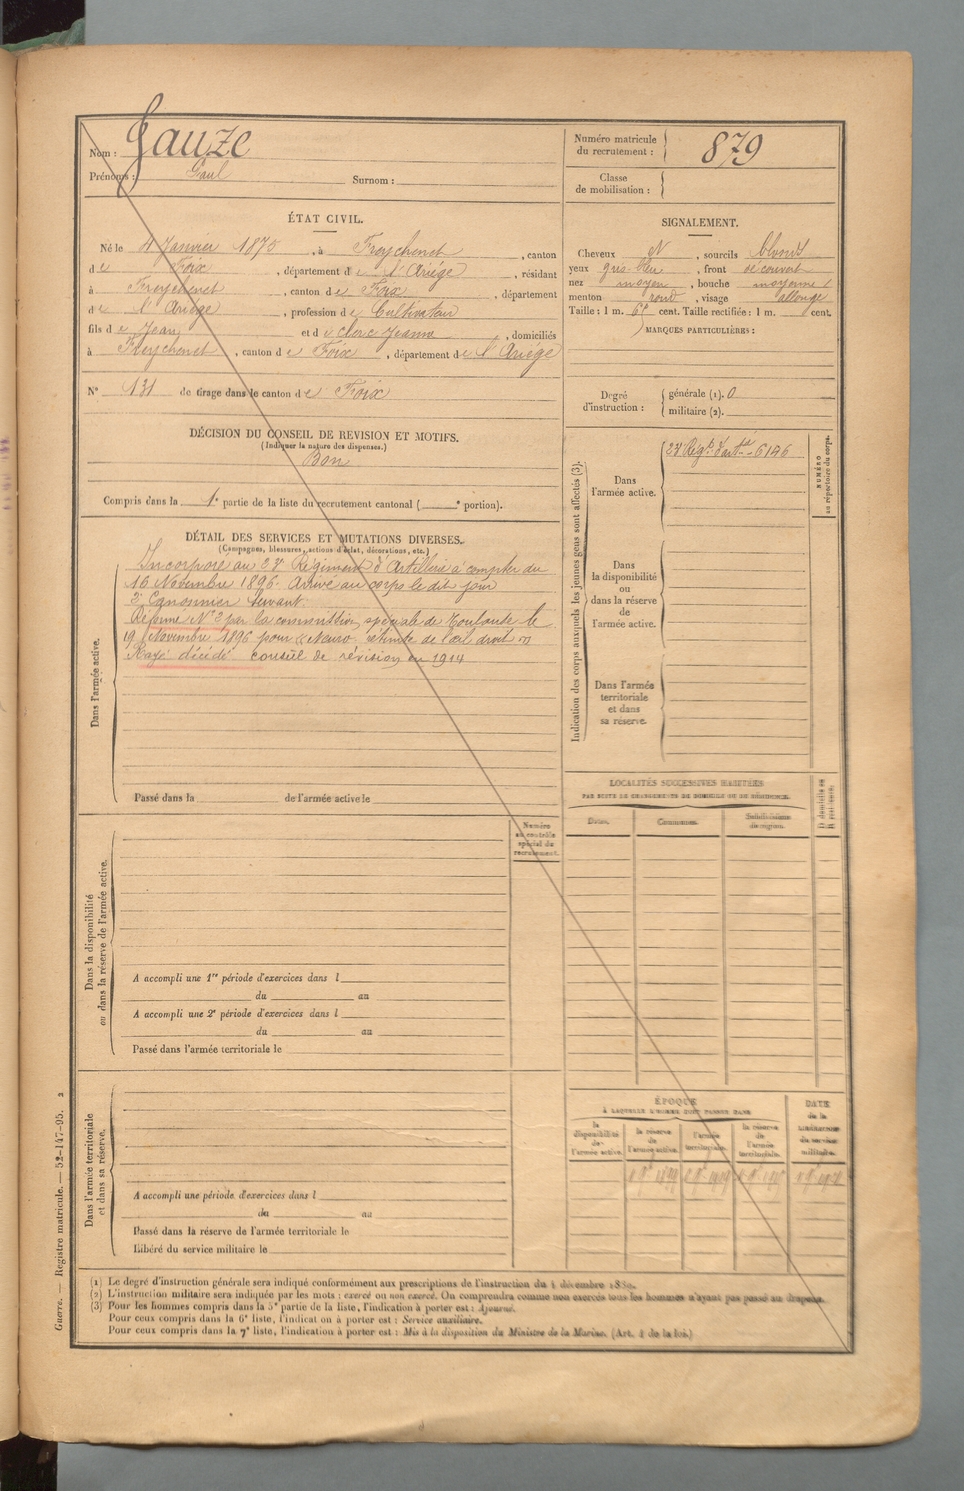 Nom : Gauze
Prénoms : Paul Surnom :
Numéro matricule du recrutement : 879
Classe de mobilisation :
ÉTAT CIVIL.
Né le 4 Janvier 1875, à Freychenet, canton
de Foix, département de l'Ariège, résidant
à Freychenet, canton de Foix, département
de l'Ariège, profession de Cultivateur
fils de Jean et de Clerc Jeanne, domiciliés
à Freychenet, canton de Foix, département de l'Ariège
N° 131 de tirage dans le canton de Foix
DÉCISION DU CONSEIL DE REVISION ET MOTIFS.
(Indiquer la nature des dispenses.)
Bon
Compris dans la 1e partie de la liste du recrutement cantonal ( e portion).
SIGNALEMENT.
Cheveux N, sourcils blonds
yeux gris bleu, front découvert
nez moyen, bouche moyenne
menton rond, visage allongé
Taille : 1 m. cent. Taille rectifiée : 1 m. cent.
MARQUES PARTICULIÈRES :
Degré d'instruction : générale (1). 0
militaire (2).
DÉTAIL DES SERVICES ET MUTATIONS DIVERSES.
(Campagnes, blessures, actions d'éclat, décorations, etc.)
Dans l'armée active.
Incorporé au 23e Régiment d'Artillerie à compter du
16 Novembre 1896. Arrivé au corps le dit jour
2e Canonnier servant.
Réformé N° 2 par la commission spéciale de Toulouse le
19 Novembre 1896 pour « Neuro rétinite de l'œil droit »
Rayé décédé conseil de révision en 1914
Passé dans la de l'armée active le
Indication des corps auxquels les jeunes gens sont affectés (3).
NUMÉRO au répertoire du corps.
Dans l'armée active.
23e Régt d'artie 6146
Dans la disponibilité ou dans la réserve de l'armée active.
Dans l'armée territoriale et dans sa réserve.
LOCALITÉS SUCCESSIVES HABITÉES
PAR SUITE DE CHANGEMENTS DE DOMICILE OU DE RÉSIDENCE.
Dates. Communes. Subdivisions de région.
D domicile ou R résidence.
Dans la disponibilité ou dans la réserve de l'armée active.
Numéro au contrôle spécial du recrutement.
A accompli une 1re période d'exercices dans l
du au
A accompli une 2e période d'exercices dans l
du au
Passé dans l'armée territoriale le
Dans l'armée territoriale et dans sa réserve.
A accompli une période d'exercices dans l
du au
Passé dans la réserve de l'armée territoriale le
Libéré du service militaire le
ÉPOQUE
À LAQUELLE L'HOMME DOIT PASSER DANS
la disponibilité de l'armée active.
la réserve de l'armée active.
l'armée territoriale.
la réserve de l'armée territoriale.
DATE de la libération du service militaire.
(1) Le degré d'instruction générale sera indiqué conformément aux prescriptions de l'instruction du 4 décembre 1889.
(2) L'instruction militaire sera indiquée par les mots : exercé ou non exercé. On comprendra comme non exercés tous les hommes n'ayant pas passé au drapeau.
(3) Pour les hommes compris dans la 5e partie de la liste, l'indication à porter est : Ajourné.
Pour ceux compris dans la 6e liste, l'indication à porter est : Service auxiliaire.
Pour ceux compris dans la 7e liste, l'indication à porter est : Mis à la disposition du Ministre de la Marine. (Art. 4 de la loi.)
Guerre. — Registre matricule. — 52-147-95. 2